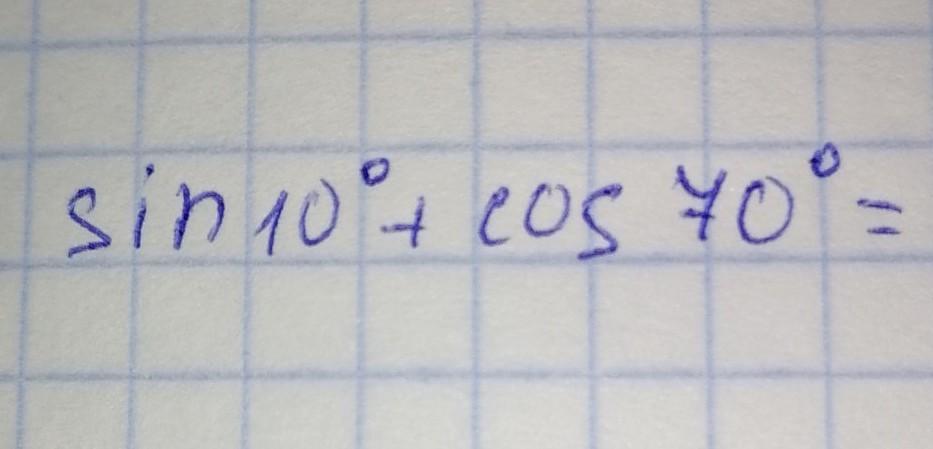 sin 10° + cos 70° =